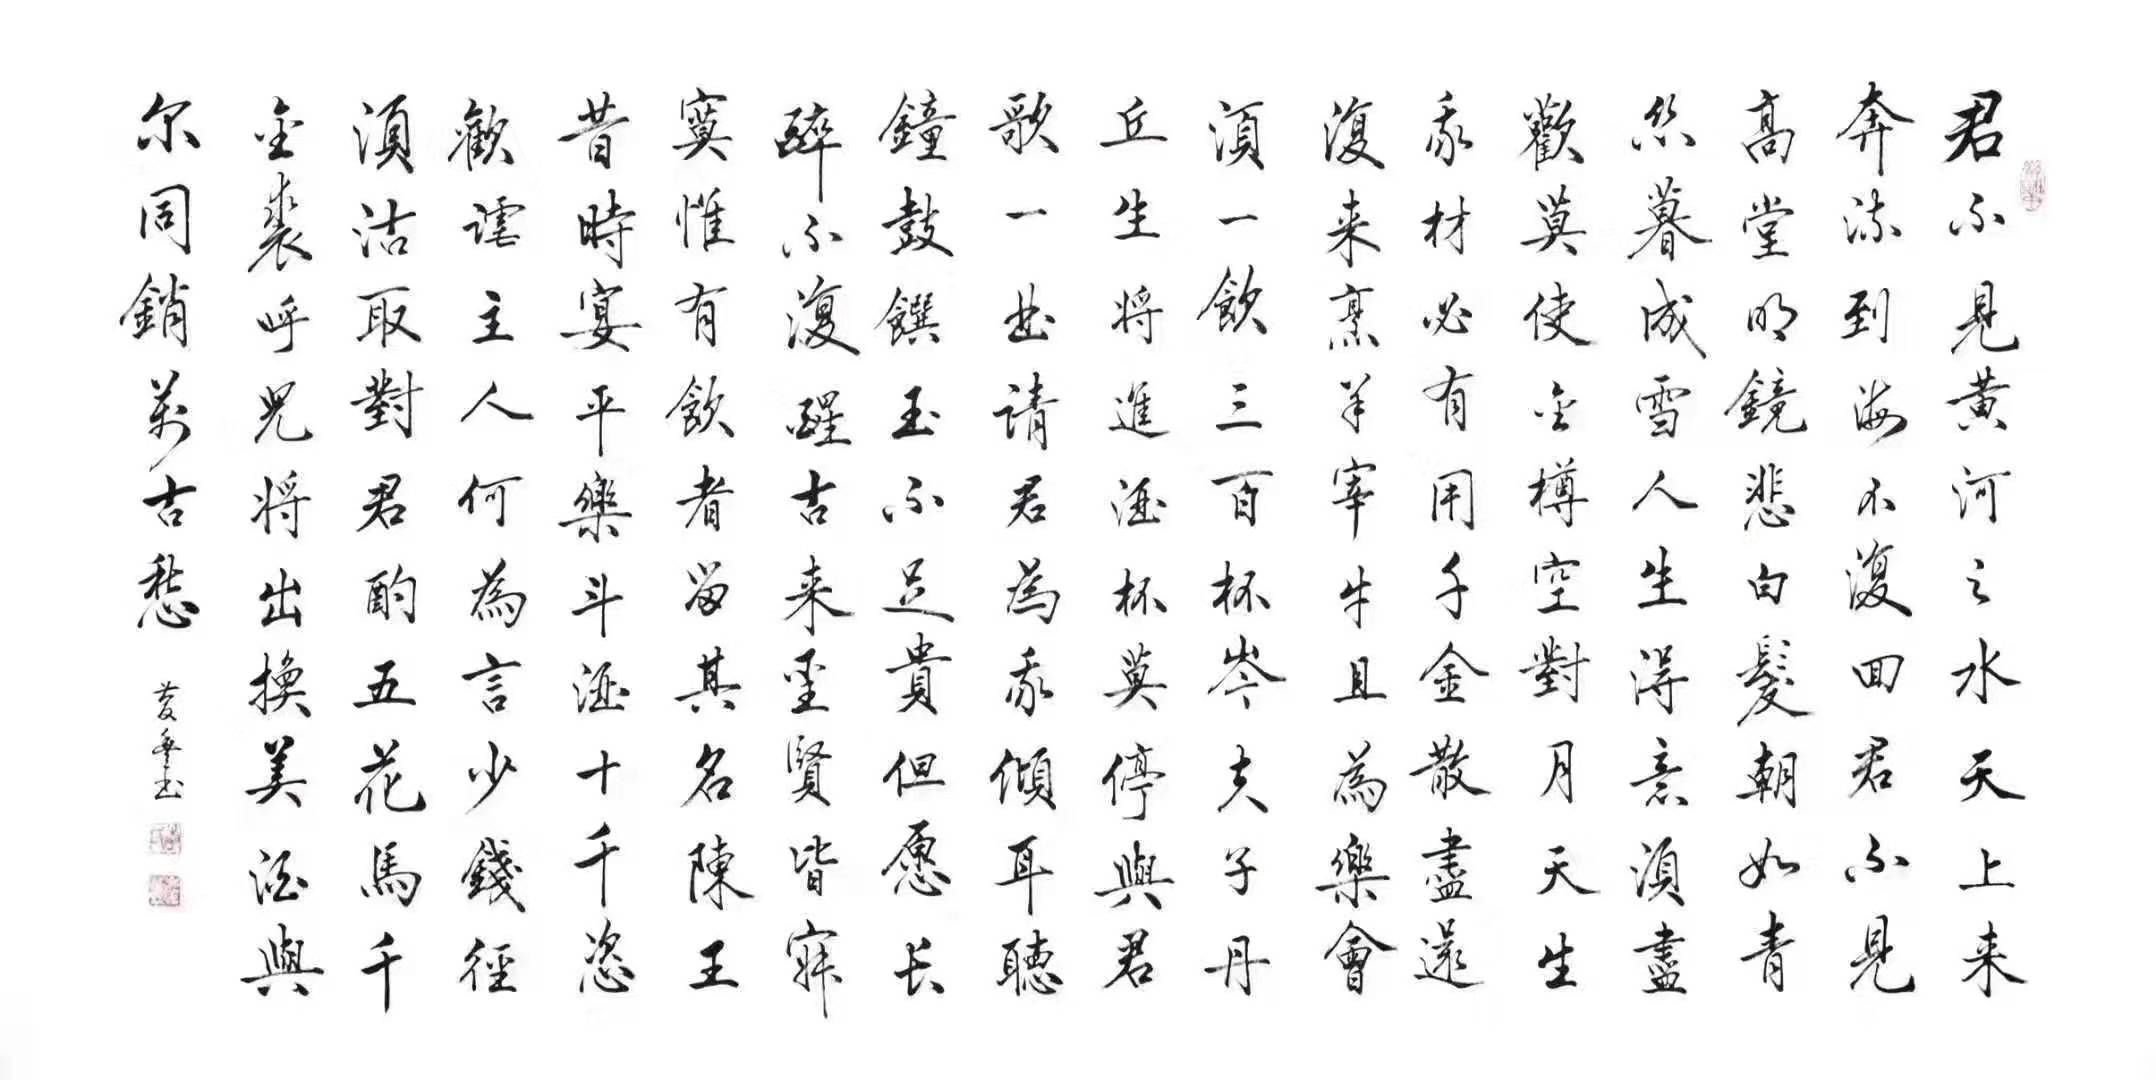 君不見黄河之水天上来
奔流到海不復回君不見
高堂明鏡悲白髮朝如青
丝暮成雪人生得意須盡
歡莫使金樽空對月天生
我材必有用千金散盡還
復来烹羊宰牛且為樂會
須一飲三百杯岑夫子丹
丘生将進酒杯莫停與君
歌一曲請君為我傾耳聽
鐘鼓饌玉不足貴但愿长
醉不復醒古来聖賢皆寂
寞惟有飲者留其名陳王
昔時宴平樂斗酒十千恣
歡謔主人何為言少錢徑
須沽取對君酌五花馬千
金裘呼兒将出換美酒與
尔同銷萬古愁